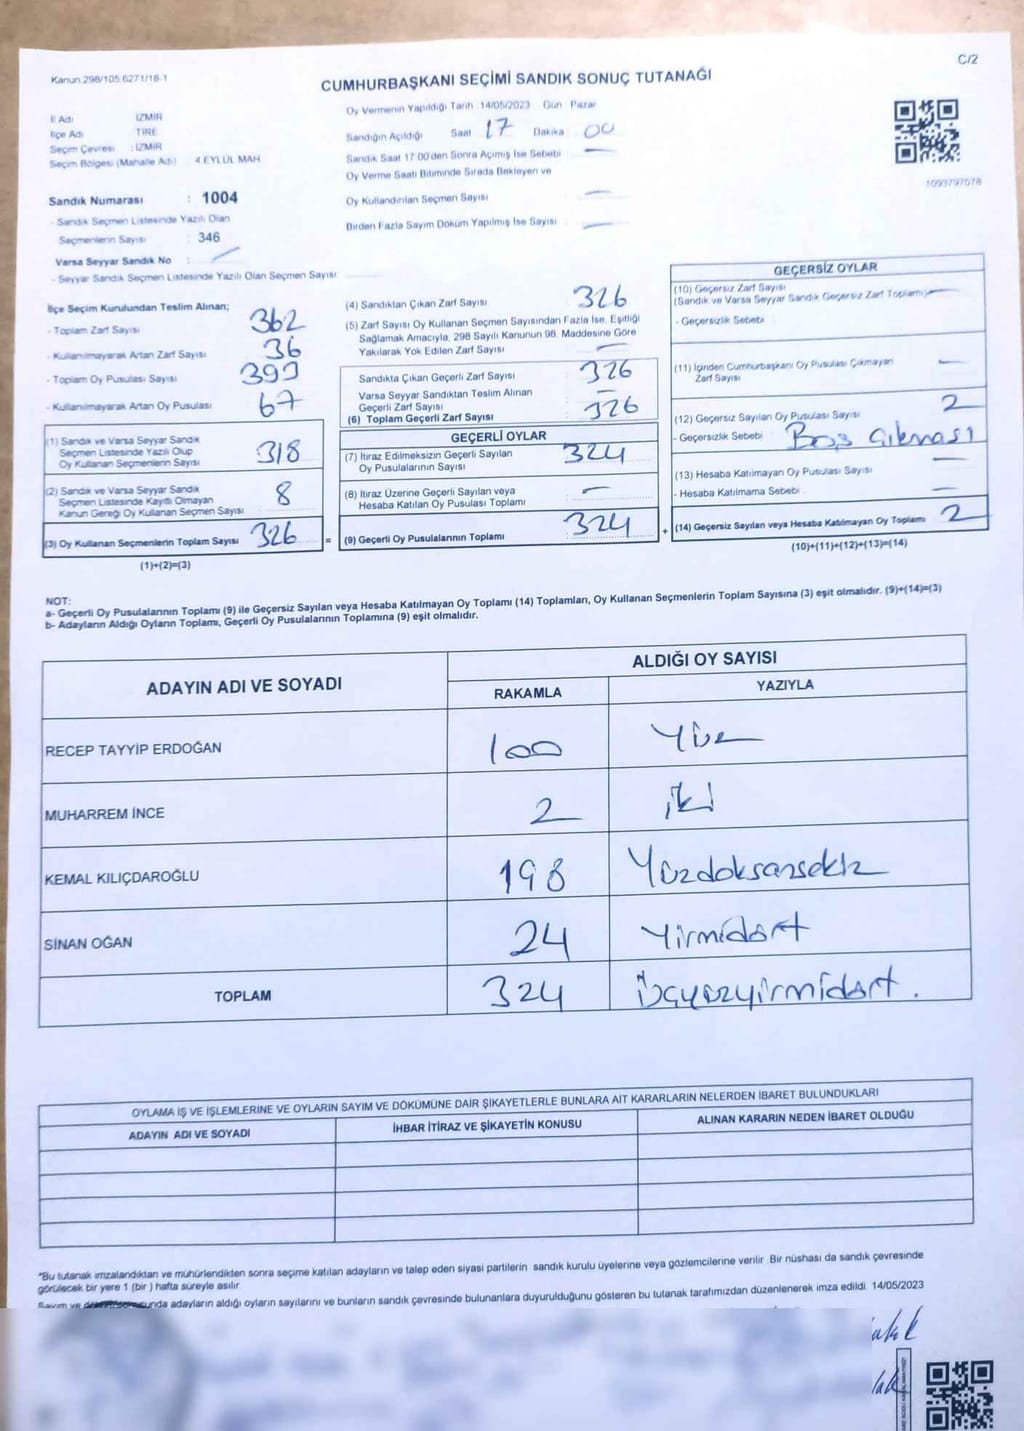 Kanun 298/105 6271/18-1
C/2
CUMHURBAŞKANI SEÇİMİ SANDIK SONUÇ TUTANAĞI
İl Adı İZMİR
İlçe Adı TİRE
Seçim Çevresi : İZMİR
Seçim Bölgesi (Mahalle Adı) 4 EYLÜL MAH
Sandık Numarası : 1004
- Sandık Seçmen Listesinde Yazılı Olan
Seçmenlerin Sayısı : 346
Varsa Seyyar Sandık No :
- Seyyar Sandık Seçmen Listesinde Yazılı Olan Seçmen Sayısı
Oy Vermenin Yapıldığı Tarih 14/05/2023 Gün Pazar
Sandığın Açıldığı Saat 17 Dakika 00
Sandık Saat 17:00 den Sonra Açımış İse Sebebi
Oy Verme Saati Bitiminde Sırada Bekleyen ve
Oy Kullandırılan Seçmen Sayısı
Birden Fazla Sayım Döküm Yapılmış İse Sayısı
1093797078
İlçe Seçim Kurulundan Teslim Alınan;
- Toplam Zarf Sayısı 362
- Kullanılmayarak Artan Zarf Sayısı 36
- Toplam Oy Pusulası Sayısı 393
- Kullanılmayarak Artan Oy Pusulası 67
(1) Sandık ve Varsa Seyyar Sandık
Seçmen Listesinde Yazılı Olup
Oy Kullanan Seçmenlerin Sayısı 318
(2) Sandık ve Varsa Seyyar Sandık
Seçmen Listesinde Kayıtlı Olmayan
Kanun Gereği Oy Kullanan Seçmen Sayısı 8
(3) Oy Kullanan Seçmenlerin Toplam Sayısı 326
(1)+(2)=(3)
(4) Sandıktan Çıkan Zarf Sayısı 326
(5) Zarf Sayısı Oy Kullanan Seçmen Sayısından Fazla İse, Eşitliği
Sağlamak Amacıyla, 298 Sayılı Kanunun 98. Maddesine Göre
Yakılarak Yok Edilen Zarf Sayısı
Sandıkta Çıkan Geçerli Zarf Sayısı 326
Varsa Seyyar Sandıktan Teslim Alınan
Geçerli Zarf Sayısı
(6) Toplam Geçerli Zarf Sayısı 326
GEÇERLİ OYLAR
(7) İtiraz Edilmeksizin Geçerli Sayılan
Oy Pusulalarının Sayısı 324
(8) İtiraz Üzerine Geçerli Sayılan veya
Hesaba Katılan Oy Pusulası Toplamı
= (9) Geçerli Oy Pusulalarının Toplamı 324 +
GEÇERSİZ OYLAR
(10) Geçersiz Zarf Sayısı
(Sandık ve Varsa Seyyar Sandık Geçersiz Zarf Toplamı)
- Geçersizlik Sebebi
(11) İçinden Cumhurbaşkanı Oy Pusulası Çıkmayan
Zarf Sayısı
(12) Geçersiz Sayılan Oy Pusulası Sayısı 2
- Geçersizlik Sebebi Boş çıkması
(13) Hesaba Katılmayan Oy Pusulası Sayısı
- Hesaba Katılmama Sebebi
(14) Geçersiz Sayılan veya Hesaba Katılmayan Oy Toplamı 2
(10)+(11)+(12)+(13)=(14)
NOT:
a- Geçerli Oy Pusulalarının Toplamı (9) ile Geçersiz Sayılan veya Hesaba Katılmayan Oy Toplamı (14) Toplamları, Oy Kullanan Seçmenlerin Toplam Sayısına (3) eşit olmalıdır. (9)+(14)=(3)
b- Adayların Aldığı Oyların Toplamı, Geçerli Oy Pusulalarının Toplamına (9) eşit olmalıdır.
ADAYIN ADI VE SOYADI
ALDIĞI OY SAYISI
RAKAMLA YAZIYLA
RECEP TAYYİP ERDOĞAN 100 Yüz
MUHARREM İNCE 2 iki
KEMAL KILIÇDAROĞLU 198 Yüzdoksansekiz
SİNAN OĞAN 24 Yirmidört
TOPLAM 324 Üçyüzyirmidört.
OYLAMA İŞ VE İŞLEMLERİNE VE OYLARIN SAYIM VE DÖKÜMÜNE DAİR ŞİKAYETLERLE BUNLARA AİT KARARLARIN NELERDEN İBARET BULUNDUKLARI
ADAYIN ADI VE SOYADI İHBAR İTİRAZ VE ŞİKAYETİN KONUSU ALINAN KARARIN NEDEN İBARET OLDUĞU
*Bu tutanak imzalandıktan ve mühürlendikten sonra seçime katılan adayların ve talep eden siyasi partilerin sandık kurulu üyelerine veya gözlemcilerine verilir. Bir nüshası da sandık çevresinde
görülecek bir yere 1 (bir) hafta süreyle asılır.
Sayım ve döküm sonucunda adayların aldığı oyların sayılarını ve bunların sandık çevresinde bulunanlara duyurulduğunu gösteren bu tutanak tarafımızdan düzenlenerek imza edildi. 14/05/2023